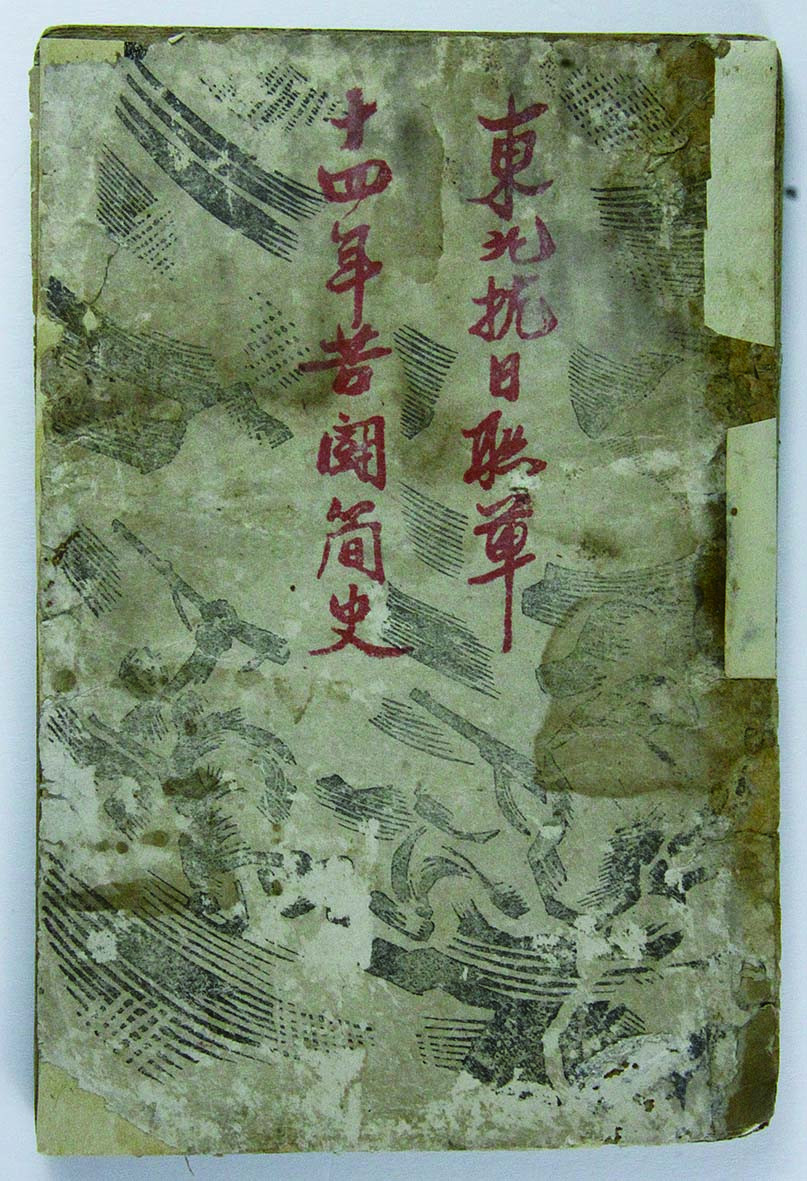 東北抗日联軍
十四年苦闘简史